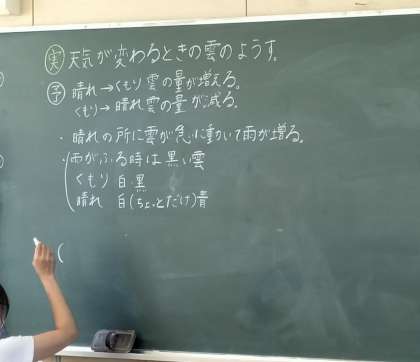 実 天気が変わるときの雲のようす。
予 晴れ→くもり 雲の量が増える。
くもり→晴れ 雲の量が減る。
・晴れの所に雲が急に動いて雨が増る。
・雨がふる時は黒い雲
くもり 白 黒
晴れ 白(ちょっとだけ)青
(